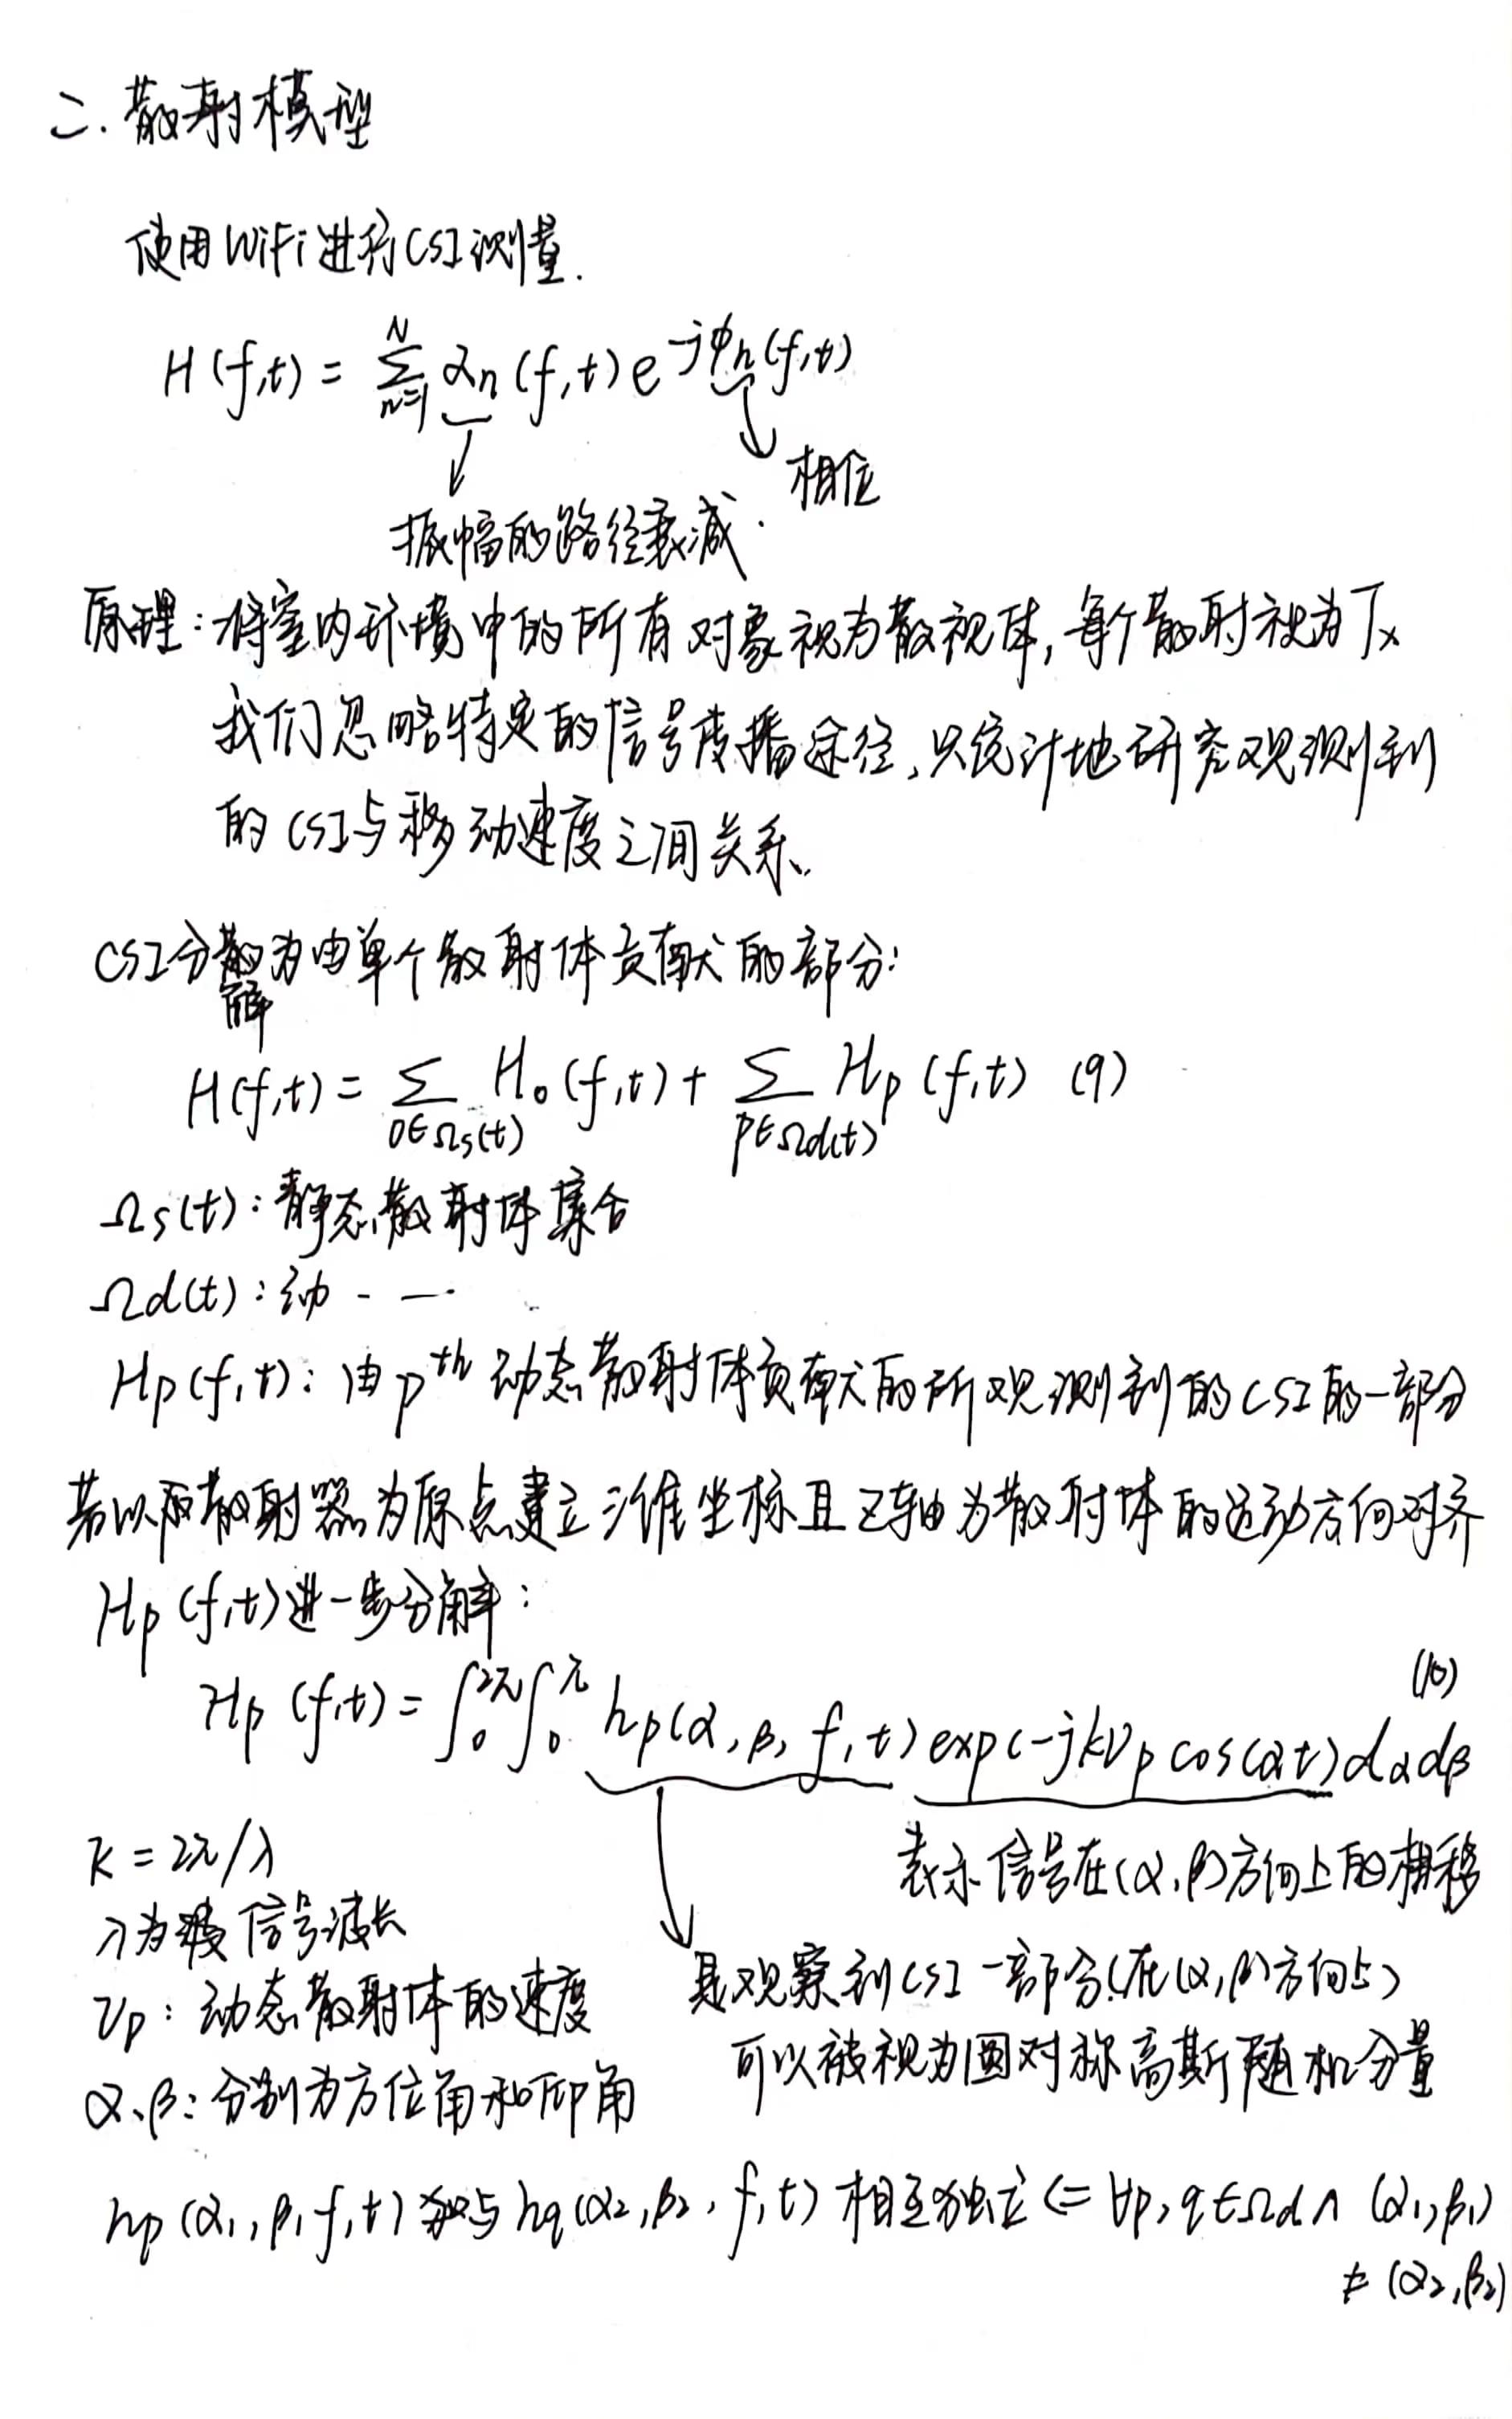 二.散射模型
使用WiFi进行CSI测量.
H(f,t) = ∑_{n=1}^{N} αn(f,t) e^{-jφn(f,t)}
相位
振幅的路径衰减.
原理:将室内环境中的所有对象视为散视体,每个散射视为Tx
我们忽略特定的信号传播途径,只统计地研究观测到
的CSI与移动速度之间关系.
CSI分散为由单个散射体贡献的部分:
解
H(f,t) = ∑_{o∈Ωs(t)} Ho(f,t) + ∑_{p∈Ωd(t)} Hp(f,t) (9)
Ωs(t):静态散射体集合
Ωd(t):动 - —
Hp(f,t): 由p^th动态散射体贡献的所观测到的CSI的一部分
若以散射器为原点建立三维坐标且Z轴为散射体的运动方向对齐
Hp(f,t)进一步分解:
Hp(f,t) = ∫_0^{2π}∫_0^{π} hp(α,β,f,t) exp(-jkVp cos(α)t) dαdβ (10)
k = 2π/λ
表示信号在(α,β)方向上的相移
λ为信号波长
是观察到CSI一部分(在(α,β)方向上)
Vp: 动态散射体的速度
可以被视为圆对称高斯随机分量
α、β: 分别为方位角和仰角
hp(α1,β1,f,t)与hq(α2,β2,f,t)相互独立 <= ∀p,q∈Ωd ∧ (α1,β1)
≠ (α2,β2)